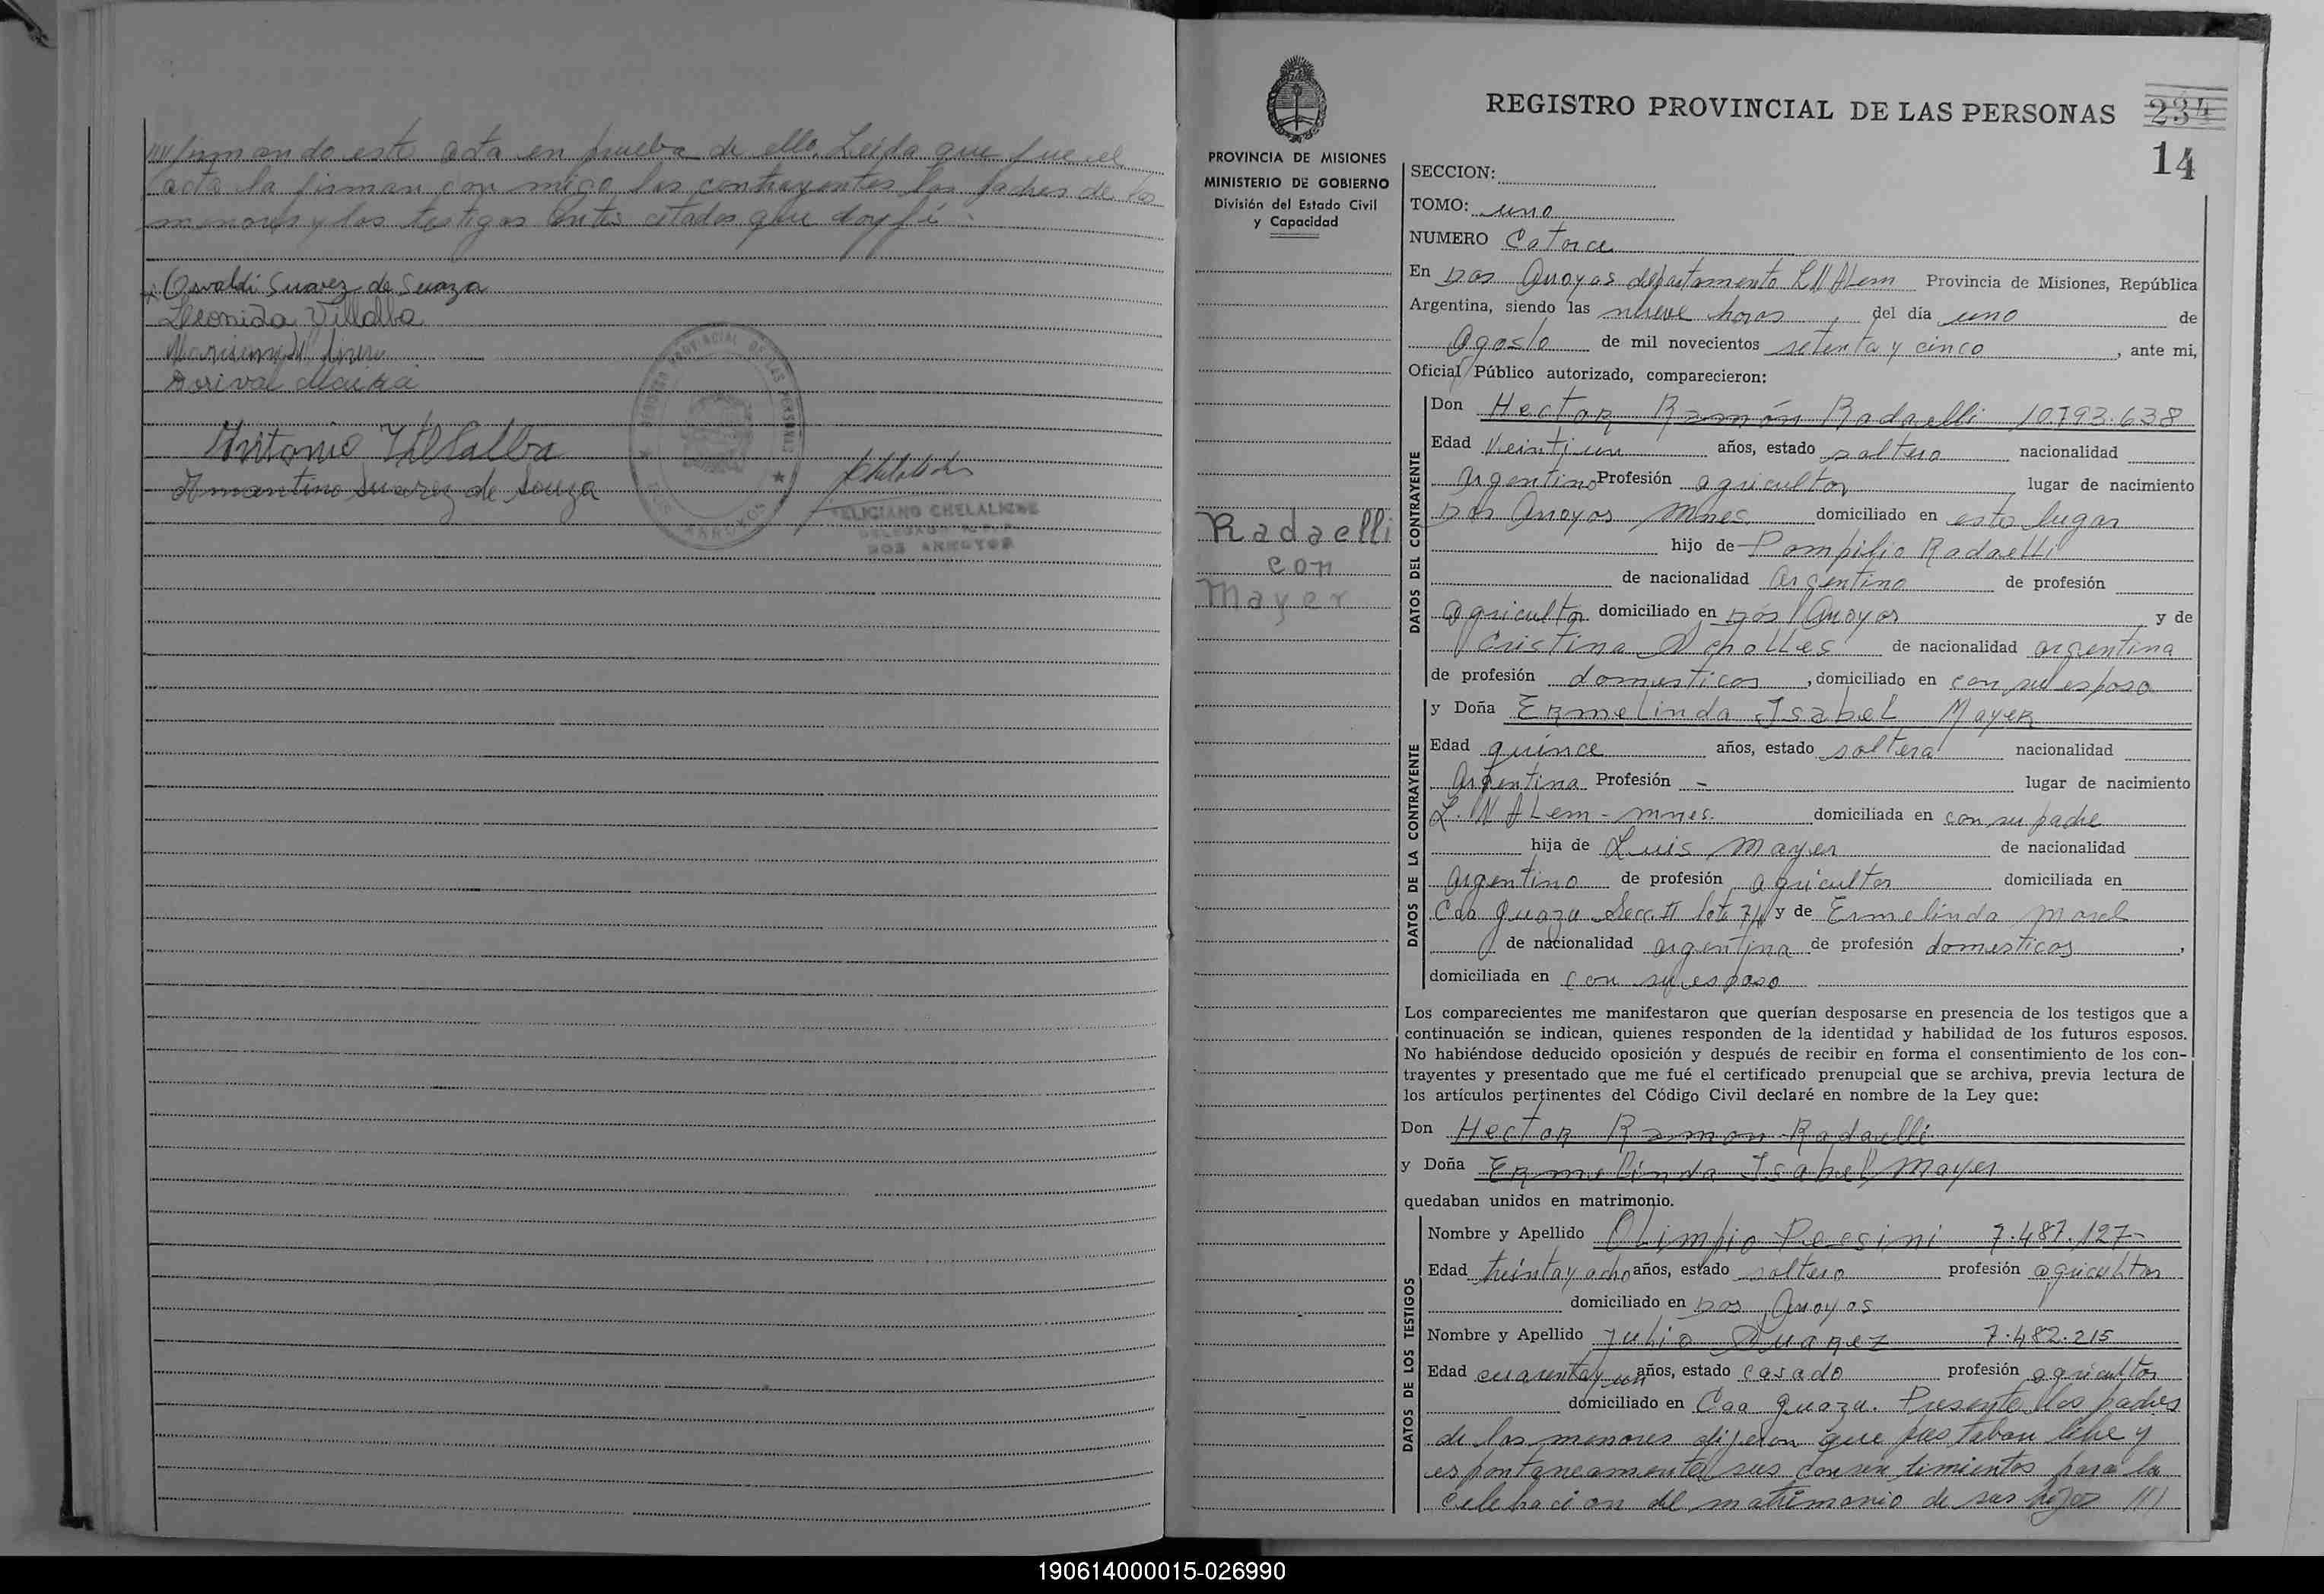 //// firmando este acta en prueba de ello. Leida que fue el
acta la firman con migo los contrayentes los padres de los
menores y los testigos antes citados que doy fé.
Osvaldi Suarez de Suaza
Leonida Villalba
Dorival
Antonio Villalba
Amantino Suarez de Souza
REGISTRO PROVINCIAL DE LAS PERSONAS
DOS ARROYOS
FELICIANO CHELALICHE
DELEGADO
DOS ARROYOS
REGISTRO PROVINCIAL DE LAS PERSONAS 234
14
PROVINCIA DE MISIONES
MINISTERIO DE GOBIERNO
División del Estado Civil
y Capacidad
Radaelli
con
Mayer
SECCION:
TOMO: uno
NUMERO Catorce
En Dos Arroyos departamento L N Alem Provincia de Misiones, República
Argentina, siendo las nueve horas, del día uno de
Agosto de mil novecientos setenta y cinco, ante mi,
Oficial Público autorizado, comparecieron:
DATOS DEL CONTRAYENTE
Don Hector Ramón Radaelli 10.793.638
Edad Veintiun años, estado soltero nacionalidad
Argentino Profesión agricultor lugar de nacimiento
Dos Arroyos Mnes. domiciliado en este lugar
hijo de Pompilio Radaelli
de nacionalidad Argentino de profesión
agricultor domiciliado en Dos Arroyos y de
Cristina de nacionalidad argentina
de profesión domesticos, domiciliado en con su esposo
DATOS DE LA CONTRAYENTE
y Doña Ermelinda Isabel Mayer
Edad quince años, estado soltera nacionalidad
Argentina Profesión - lugar de nacimiento
L. N Alem - Mnes. domiciliada en con su padre
hija de Luis Mayer de nacionalidad
argentino de profesión agricultor domiciliada en
Caa Guazu Secc. II lote 7/ y de Ermelinda Morel
de nacionalidad argentina de profesión domesticos,
domiciliada en con su esposo
Los comparecientes me manifestaron que querían desposarse en presencia de los testigos que a
continuación se indican, quienes responden de la identidad y habilidad de los futuros esposos.
No habiéndose deducido oposición y después de recibir en forma el consentimiento de los con-
trayentes y presentado que me fué el certificado prenupcial que se archiva, previa lectura de
los artículos pertinentes del Código Civil declaré en nombre de la Ley que:
Don Hector Ramon Radaelli
y Doña Ermelinda Isabel Mayer
quedaban unidos en matrimonio.
DATOS DE LOS TESTIGOS
Nombre y Apellido Olimpio Pessini 7.487.127-
Edad treinta y ocho años, estado soltero profesión agricultor
domiciliado en Dos Arroyos
Nombre y Apellido Julio Suarez 7.482.215
Edad cuarenta y un años, estado casado profesión agricultor
domiciliado en Caa Guazu. Presente los padres
de los menores dijeron que prestaban libre y
espontaneamente sus consentimientos para la
celebracion del matrimonio de sus hijos ////
190614000015-026990